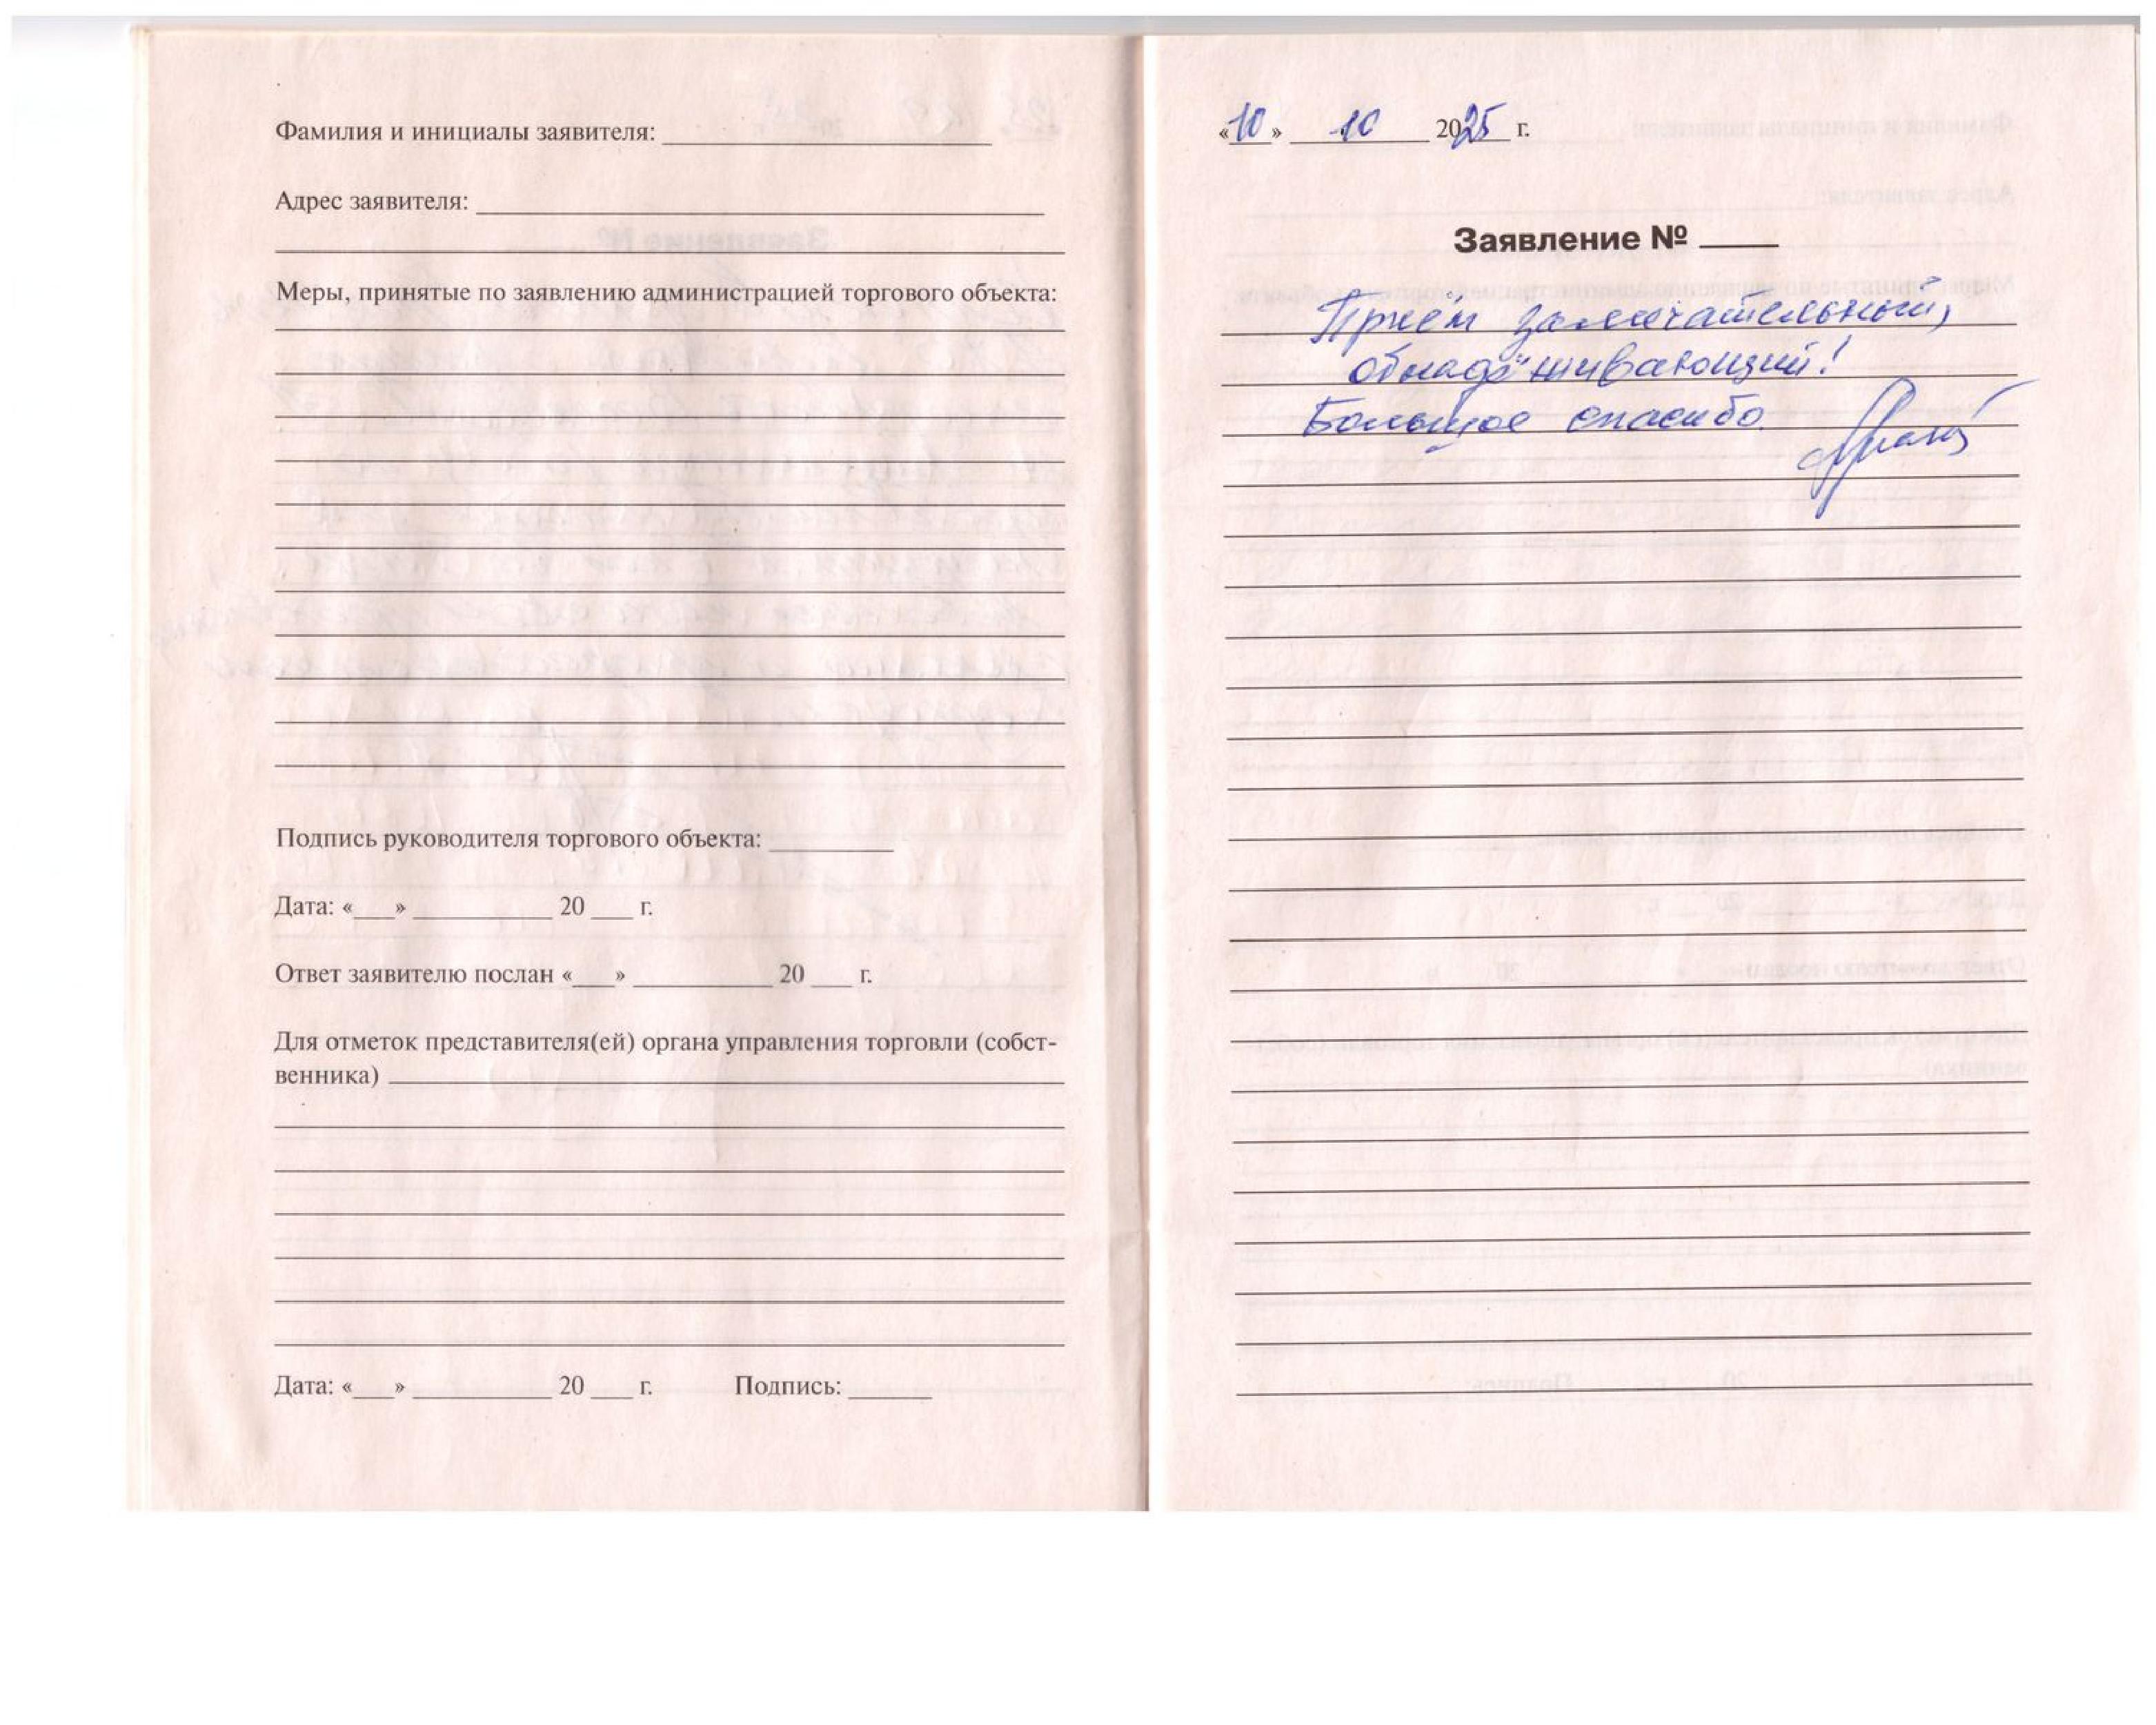 Фамилия и инициалы заявителя:
Адрес заявителя:
Меры, принятые по заявлению администрацией торгового объекта:
Подпись руководителя торгового объекта:
Дата: «___» ______ 20 ___ г.
Ответ заявителю послан «___» ______ 20 ___ г.
Для отметок представителя(ей) органа управления торговли (собст-
венника)
Дата: «___» ______ 20 ___ г. Подпись: ______
«10» 10 2025 г.
Заявление № ____
Приём замечательный,
обнадёживающий!
Большое спасибо.